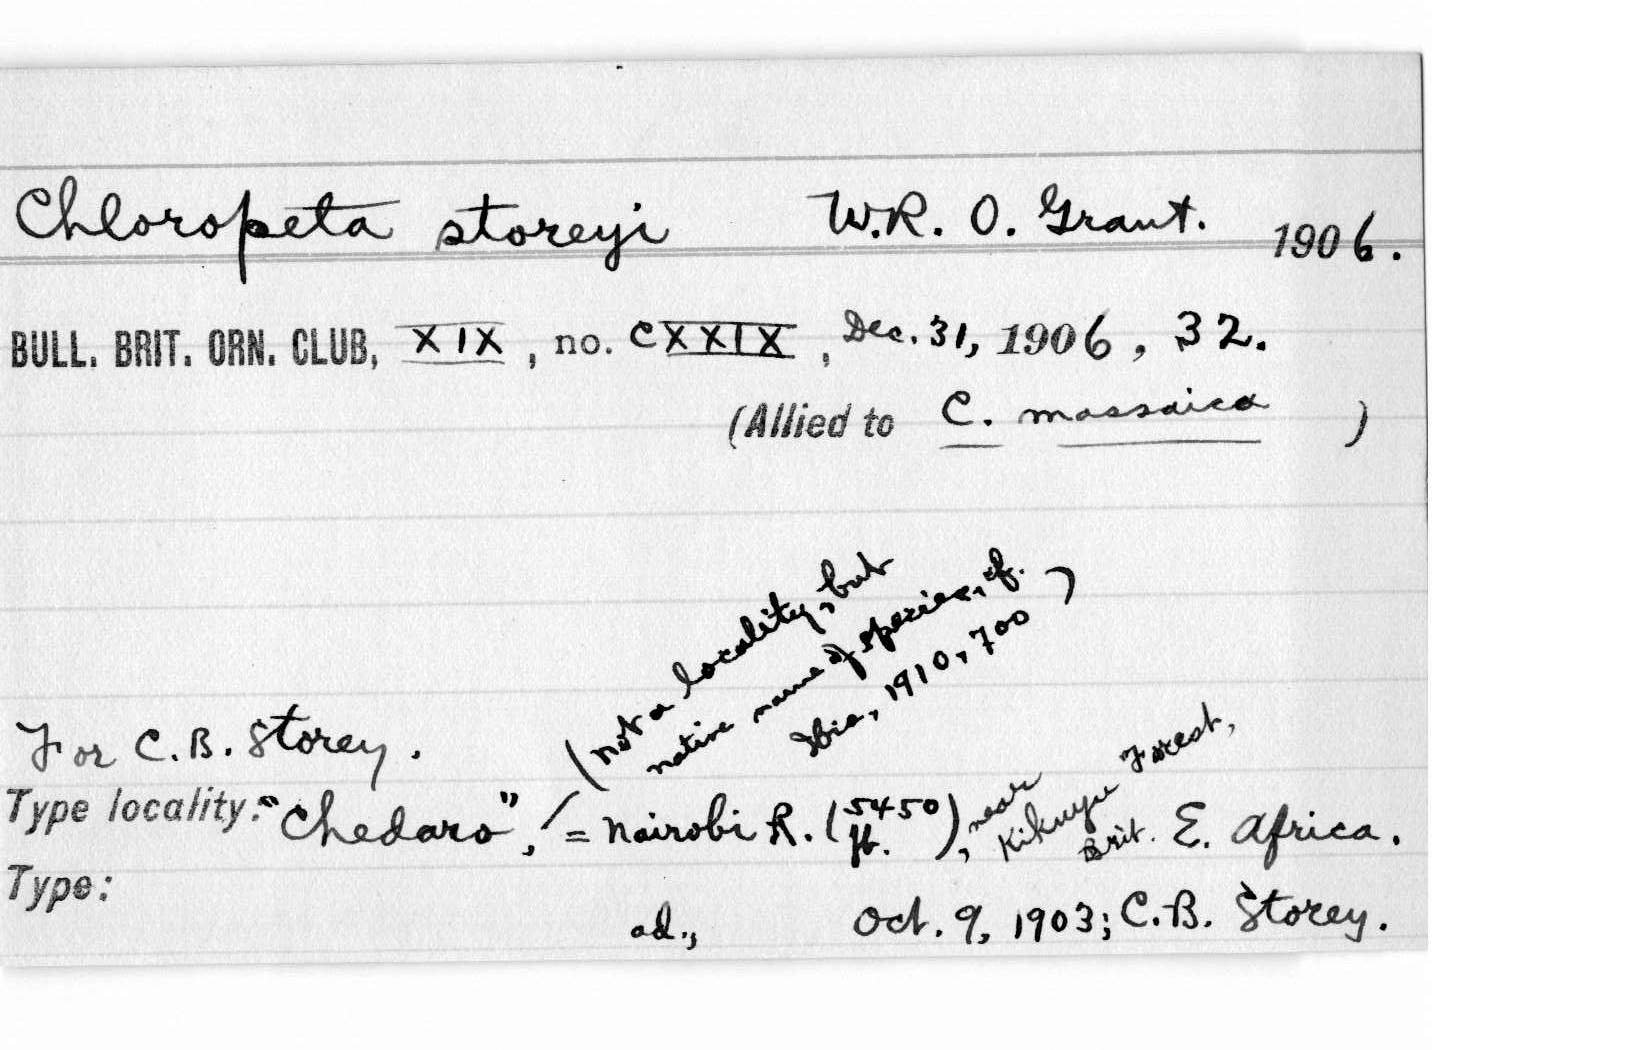 Chloropeta storeyi W.R. O. Grant. 1906.
BULL. BRIT. ORN. CLUB, XIX, no. CXXIX, Dec. 31, 1906, 32.
(Allied to C. massaica )
(not a locality, but
native name of species, cf.
Ibis, 1910, 700)
For C.B. Storey.
Type locality: "Chedaro", = Nairobi R. (5450 ft.), near Kikuyu Forest, Brit. E. Africa.
Type:
ad., Oct. 9, 1903; C.B. Storey.